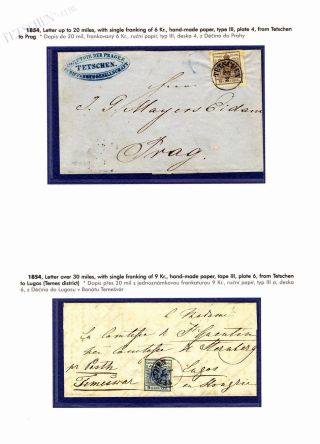 TETSCHEN
1854, Letter up to 20 miles, with single franking of 6 Kr., hand-made paper, type III, plate 4, from Tetschen
to Prag * Dopis do 20 mil, frankovaný 6 Kr., ruční papír, typ III, deska 4, z Děčína do Prahy
COMPTOIR DER PRAGER
TETSCHEN.
J. G. Mayers Eidam
Prag.
1854, Letter over 30 miles, with single franking of 9 Kr., hand-made paper, tape III, plate 6, from Tetschen
to Lugos (Temes district) * Dopis přes 20 mil s jednoznámkovou frankaturou 9 Kr., ruční papír, typ III a, deska
6, z Děčína do Lugosu v Banátu Temešvár
à Madame
La Comtesse de
née Comtesse de
per Pesth Lugos
Temeswar en Hongrie